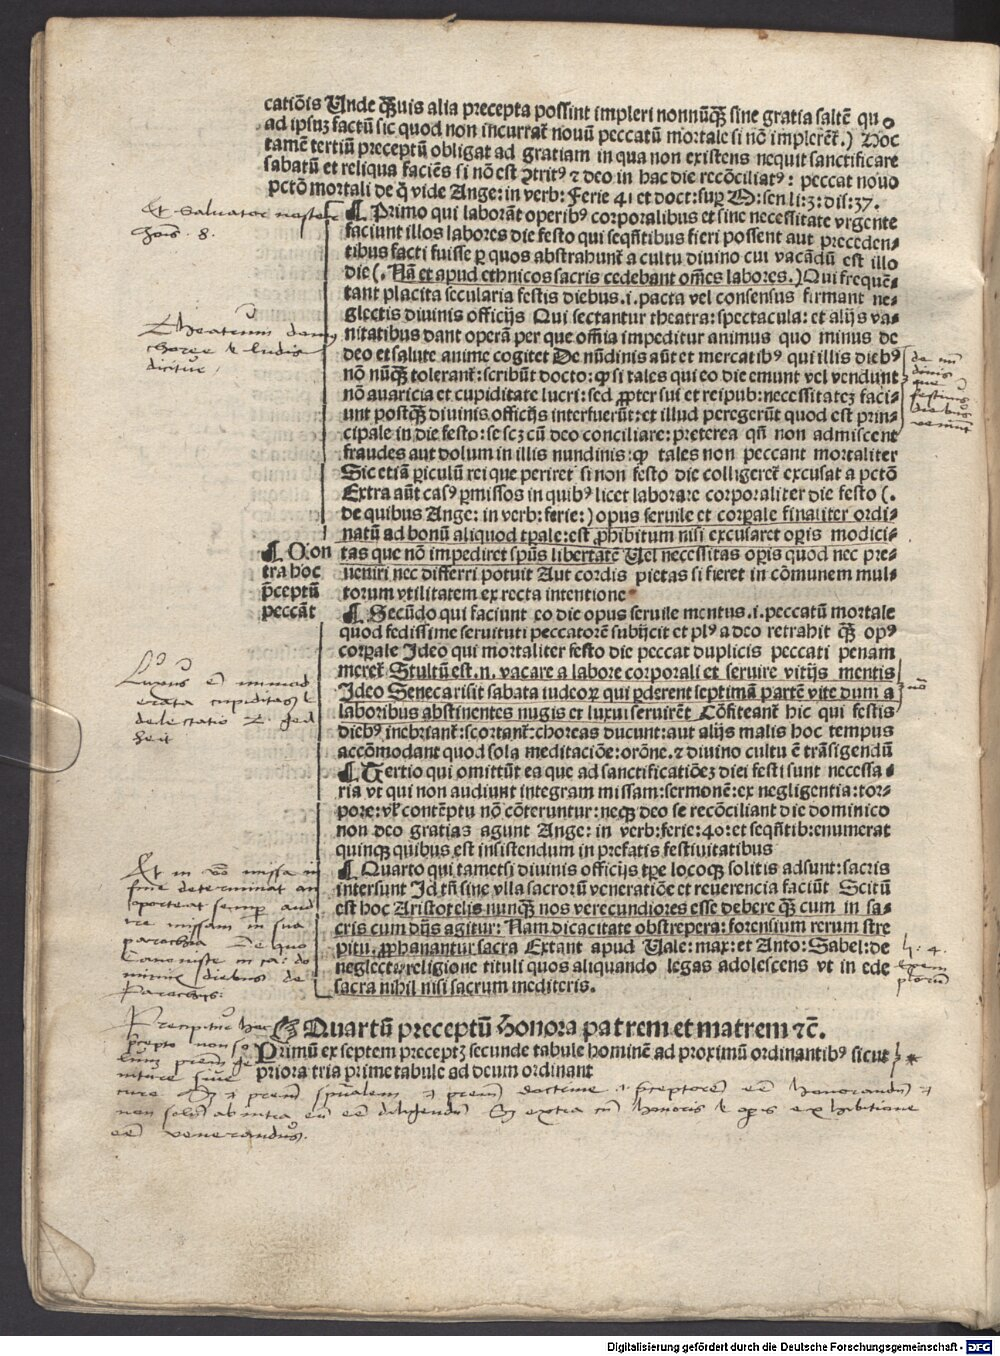 catiōis Unde q̄̄uis alia precepta possint impleri nonnūq̄̄ sine gratia saltē quo
ad ipsuꝫ factū sic quod non incurrat̄ nouū peccatū mortale si nō implerēt̄.) Hoc
tamē tertiū preceptū obligat ad gratiam in qua non existens nequit sanctificare
sabatū et reliqua faciēs si nō est ꝯtritꝰ ⁊ deo in hac die recōciliatꝰ: peccat nouo
pctō mortali de q̄ vide Ange: in verb: Ferie 41 et doct: suꝑ M: sen li: 3: dis: 37.
Et Saluator noster
Johīs . 8.
¶ Primo qui laborāt operibꝰ corporalibus et sine necessitate vrgente
faciunt illos labores die festo qui seqn̄tibus fieri possent aut preceden⸗
tibus facti fuisse ꝑ quos abstrahunt̄ a cultu diuino cui vacādū est illo
die (. Nā et apud ethnicos sacris cedebant om̄es labores.) Qui frequē⸗
tant placita secularia festis diebus .i. pacta vel consensus firmant ne⸗
glectis diuinis officijs Qui sectantur theatra: spectacula: et alijs va⸗
nitatibus dant operā per que om̄ia impeditur animus quo minus de
deo et salute anime cogitet De nūdinis aūt et mercatibꝰ qui illis diebꝰ
nō nūq̄̄ tolerant̄: scribūt docto: ꝙ si tales qui eo die emunt vel vendunt
nō auaricia et cupiditate lucri: sed ꝓpter sui et reipub: necessitateꝫ faci⸗
unt postq̄̄ diuinis officijs interfuerūt: et illud peregerūt quod est prin⸗
cipale in die festo: se scꝫ cū deo conciliare: preterea qn̄ non admiscent
fraudes aut dolum in illis nundinis: ꝙ tales non peccant mortaliter
Sic etiā ꝑiculū rei que periret si non festo die colligeret̄ excusat a pctō
Extra aūt casꝰ ꝑmissos in quibꝰ licet laborare corporaliter die festo (.
de quibus Ange: in verb: ferie:) opus seruile et corꝑale finaliter ordi⸗
natū ad bonū aliquod tꝑale: est ꝓhibitum nisi excusaret oꝑis modici⸗
tas que nō impediret sp̄us libertatē Uel necessitas oꝑis quod nec pre⸗
ueniri nec differri potuit Aut cordis pietas si fieret in cōmunem mul⸗
torum vtilitatem ex recta intentione
Theatrum
choree & ludis
dicitur
de nū
dinis
que
festiuis
diebus
veniunt
¶ Con
tra hoc
p̄ceptū
peccāt
¶ Secūdo qui faciunt eo die opus seruile mentus .i. peccatū mortale
quod fedissime seruituti peccatorē subijcit et plꝰ a deo retrahit q̄̄ opꝰ
corꝑale Ideo qui mortaliter festo die peccat duplicis peccati penam
meret̄ Stultū est .n. vacare a labore corporali et seruire vitijs mentis
Ideo Seneca risit sabata iudeoꝝ qui ꝑderent septimā partē vite dum a
laboribus abstinentes nugis et luxui seruirēt Cōfiteant̄ hic qui festis
diebꝰ inebriant̄: scortant̄: choreas ducunt: aut alijs malis hoc tempus
accōmodant quod sola meditaciōe: orōne. ⁊ diuino cultu ē trāsigendū
Luxus ē immod
erata cupiditas &
delectatio
heit
¶ Tertio qui omittūt ea que ad sanctificatiōeꝫ diei festi sunt necessa⸗
ria vt qui non audiunt integram missam: sermonē: ex negligentia: tor⸗
pore: vl̄ contēptu nō cōteruntur: neqꝫ deo se recōciliant die dominico
non deo gratias agunt Ange: in verb: ferie: 40: et seqn̄tib: enumerat
quinqꝫ quibus est insistendum in prefatis festiuitatibus
¶ Quarto qui tametsi diuinis officijs tꝑe locoqꝫ solitis adsunt: sacris
intersunt Id tn̄ sine vlla sacrorū veneratiōe et reuerencia faciūt Scitū
est hoc Aristotelis nunq̄̄ nos verecundiores esse debere q̄̄ cum in sa⸗
cris cum dijs agitur: Nam dicacitate obstrepera: forensium rerum stre
pitu. ꝓphanantur sacra Extant apud Uale: max: et Anto: Sabel: de
neglecta religione tituli quos aliquando legas adolescens vt in ede
sacra nihil nisi sacrum mediteris.
Et in missa in
fine determinat an
oporteat semper audi
re missam in sua
parachia De quo
Canoniste in ca: do
minicis diebus de
Parachijs:
li: 4.
exem
plorum
Quartū preceptū Honora patrem et matrem ⁊c̄.
Primū ex septem preceptꝫ secunde tabule hominē ad proximū ordinantibꝰ sicut
priora tria prime tabule ad deum ordinant
Precipitur hac
precepto non so
lum prēm ge
niture siue
cure ⁊ prēm spūalem ⁊ prēm doctrine ⁊ p̄ceptorē eē honorandū ⁊
non solū ab intra eū eē diligendū Sꝫ extra cū honoris & oꝑis exhibitione
eē venerandus.
Digitalisierung gefördert durch die Deutsche Forschungsgemeinschaft - DFG